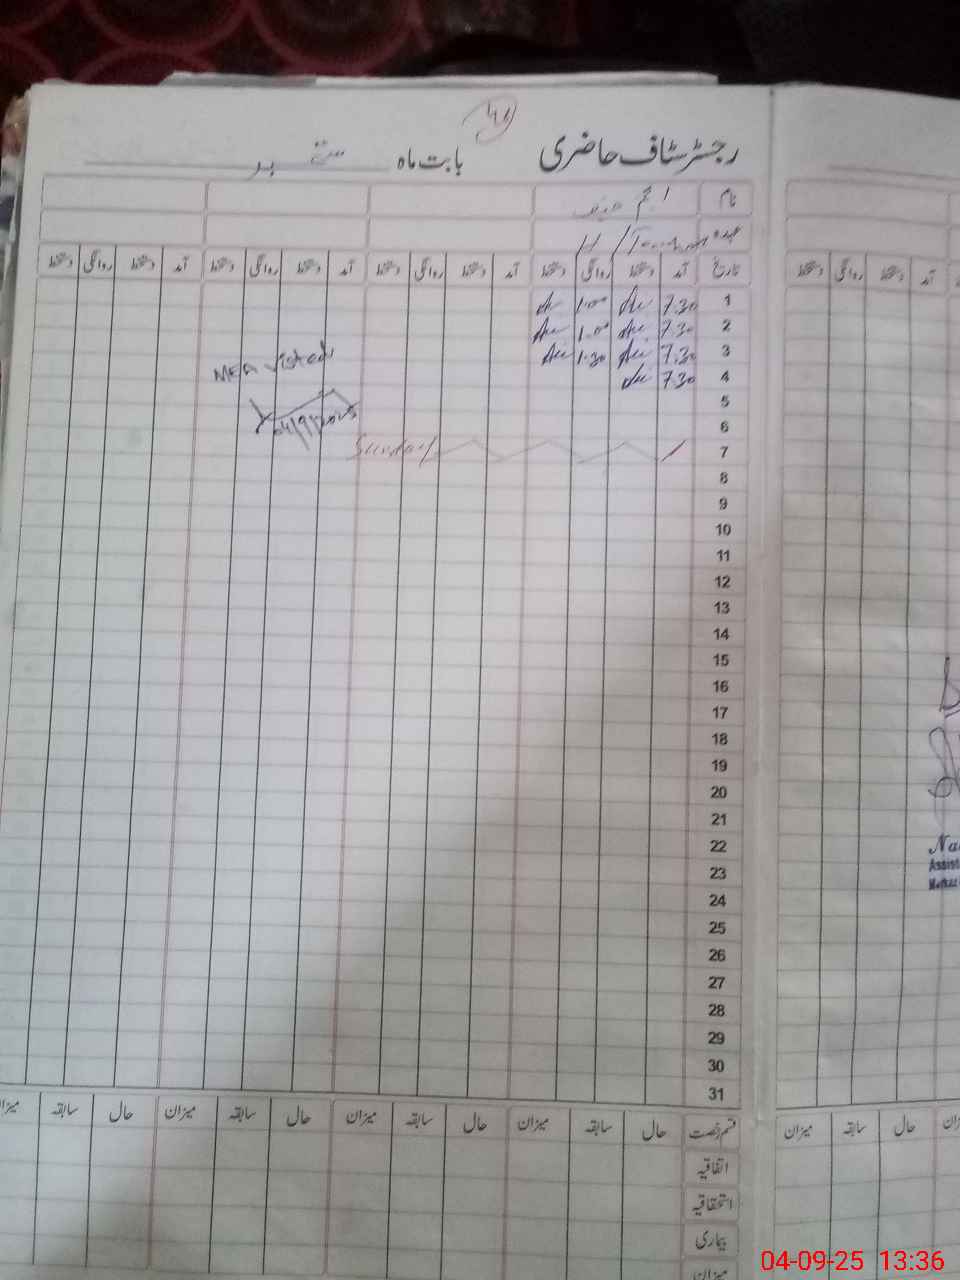 رجسٹر سٹاف حاضری بابت ماہ ستمبر
نام
عہدہ H/
تاریخ آمد دستخط روانگی دستخط آمد دستخط روانگی دستخط آمد دستخط روانگی دستخط آمد دستخط روانگی دستخط
1 7.30 1.00
2 7.30 1.00
3 7.30 1.30
4 7.30
MEA visited
04/9/2025
5
6
7 Sunday
8
9
10
11
12
13
14
15
16
17
18
19
20
21
22
23
24
25
26
27
28
29
30
31
قسم رخصت حال سابقہ میزان حال سابقہ میزان حال سابقہ میزان حال سابقہ میزان
اتفاقیہ
استحقاقیہ
بیماری
میزان
آمد دستخط روانگی دستخط
حال سابقہ میزان
04-09-25 13:36